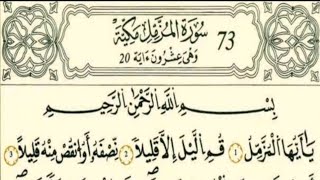 سُورَةُ المُزَّمِّلِ مَكِّيَّةٌ 73
وَهِيَ عِشْرُونَ ءَايَة 20
بِسْمِ اللَّهِ الرَّحْمَٰنِ الرَّحِيمِ
يَا أَيُّهَا الْمُزَّمِّلُ 1 قُمِ اللَّيْلَ إِلَّا قَلِيلًا 2 نِّصْفَهُ أَوِ انقُصْ مِنْهُ قَلِيلًا 3